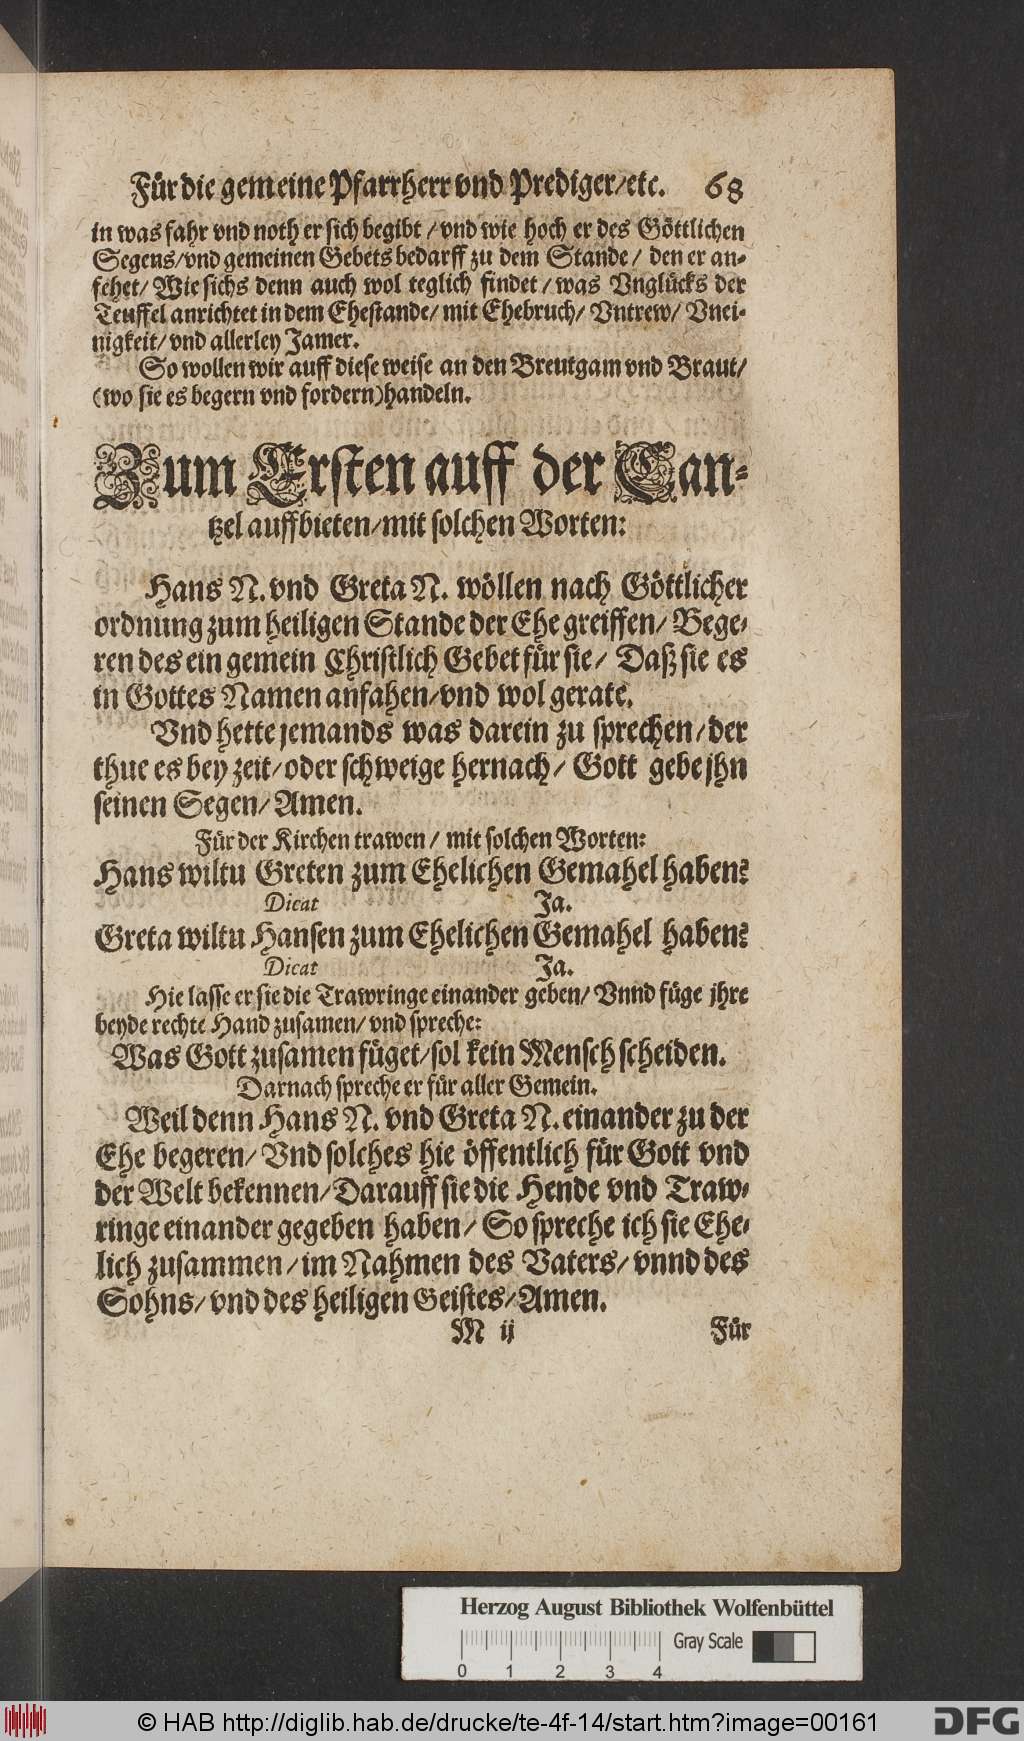 Für die gemeine Pfarrherr vnd Prediger/etc. 68
in was fahr vnd noth er sich begibt / vnd wie hoch er des Göttlichen
Segens/vnd gemeinen Gebets bedarff zu dem Stande / den er an-
fehet/ Wie sichs denn auch wol teglich findet / was Vnglücks der
Teuffel anrichtet in dem Ehestande/ mit Ehebruch/ Vntrew/ Vnei-
nigkeit/ vnd allerley Jamer.
So wollen wir auff diese weise an den Breutgam vnd Braut/
(wo sie es begern vnd fordern)handeln.
Zum Ersten auff der Can-
tzel auffbieten/mit solchen Worten:
Hans N. vnd Greta N. wöllen nach Göttlicher
ordnung zum heiligen Stande der Ehe greiffen/ Bege-
ren des ein gemein Christlich Gebet für sie/ Daß sie es
in Gottes Namen anfahen/vnd wol gerate.
Vnd hette jemands was darein zu sprechen/der
thue es bey zeit/oder schweige hernach/ Gott gebe jhn
seinen Segen/ Amen.
Für der Kirchen trawen / mit solchen Worten:
Hans wiltu Greten zum Ehelichen Gemahel haben?
Dicat Ja.
Greta wiltu Hansen zum Ehelichen Gemahel haben?
Dicat Ja.
Hie lasse er sie die Trawringe einander geben/ Vnnd füge jhre
beyde rechte Hand zusamen/ vnd spreche:
Was Gott zusamen füget/sol kein Mensch scheiden.
Darnach spreche er für aller Gemein.
Weil denn Hans N. vnd Greta N. einander zu der
Ehe begeren/ Vnd solches hie öffentlich für Gott vnd
der Welt bekennen/Darauff sie die Hende vnd Traw-
ringe einander gegeben haben/ So spreche ich sie Ehe-
lich zusammen/im Nahmen des Vaters/ vnnd des
Sohns/ vnd des heiligen Geistes/Amen.
M ij Für
Herzog August Bibliothek Wolfenbüttel
Gray Scale
0 1 2 3 4
© HAB http://diglib.hab.de/drucke/te-4f-14/start.htm?image=00161
DFG